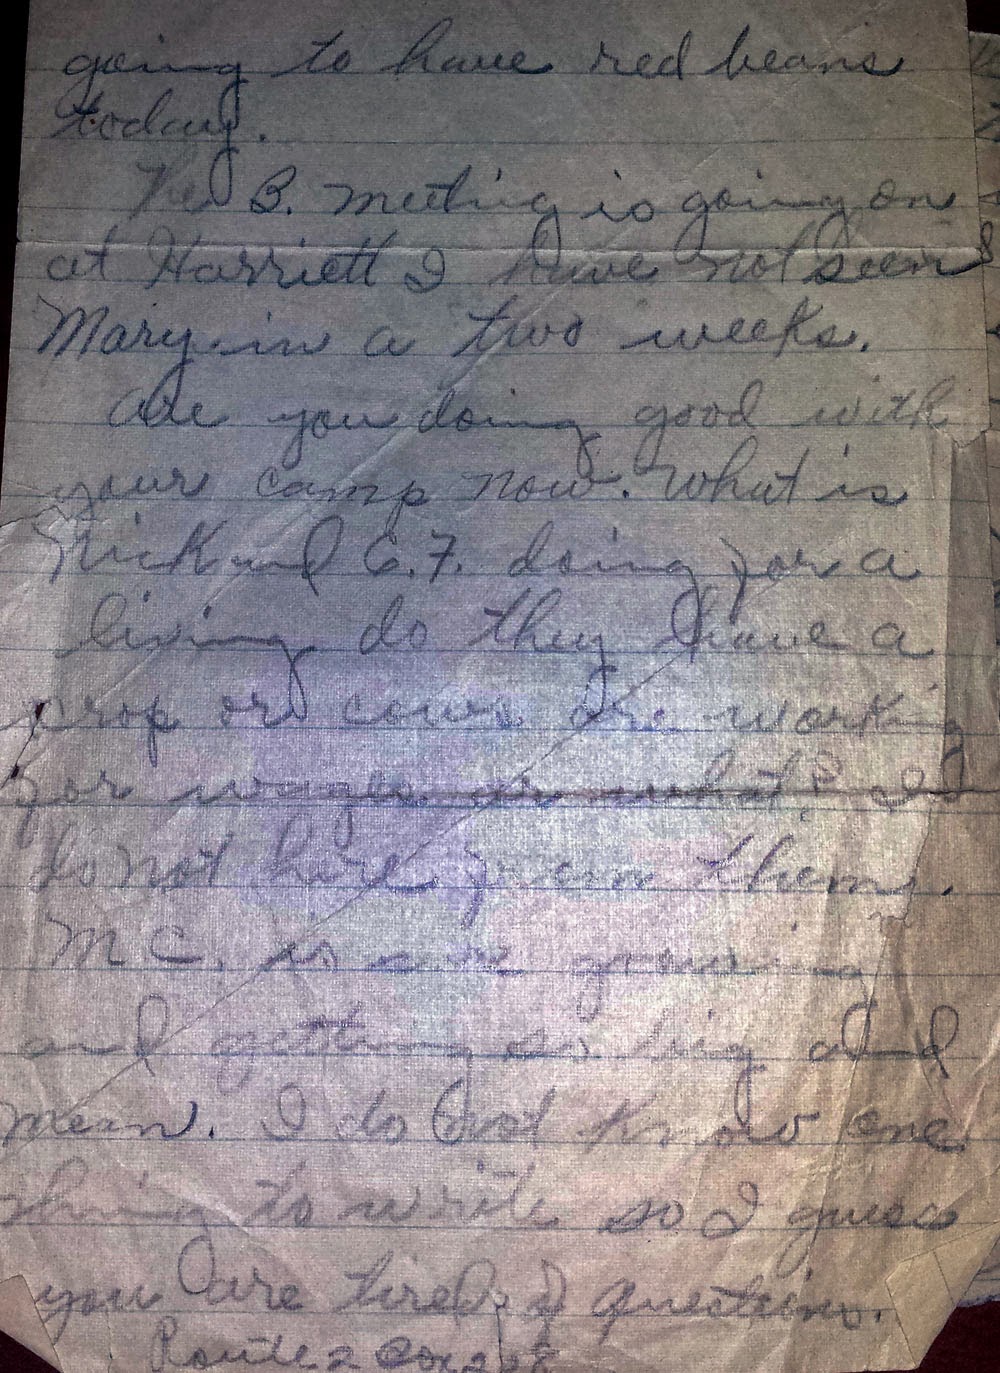 going to have red beans
today.
The B. meeting is going on
at Harriett I have not seen
Mary in a two weeks.
Are you doing good with
your camp now. What is
Nick and C.F. doing for a
living do they have a
crop or cows are working
for wages or what? I
do not hire from them.
M C. is growing
and getting so big and
mean. I do not know one
thing to write so I guess
you are tired of question.
Route 2 Box 228